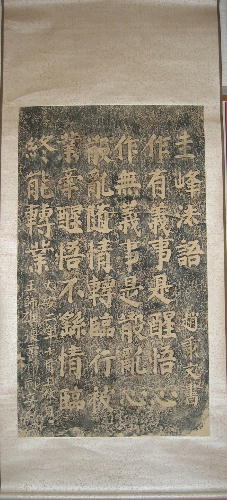 圭峰法語 趙秉文書
作有義事是醒悟心
作無義事是散亂心
散亂隨情轉臨行被
業牽醒悟不繇情臨
終能轉業